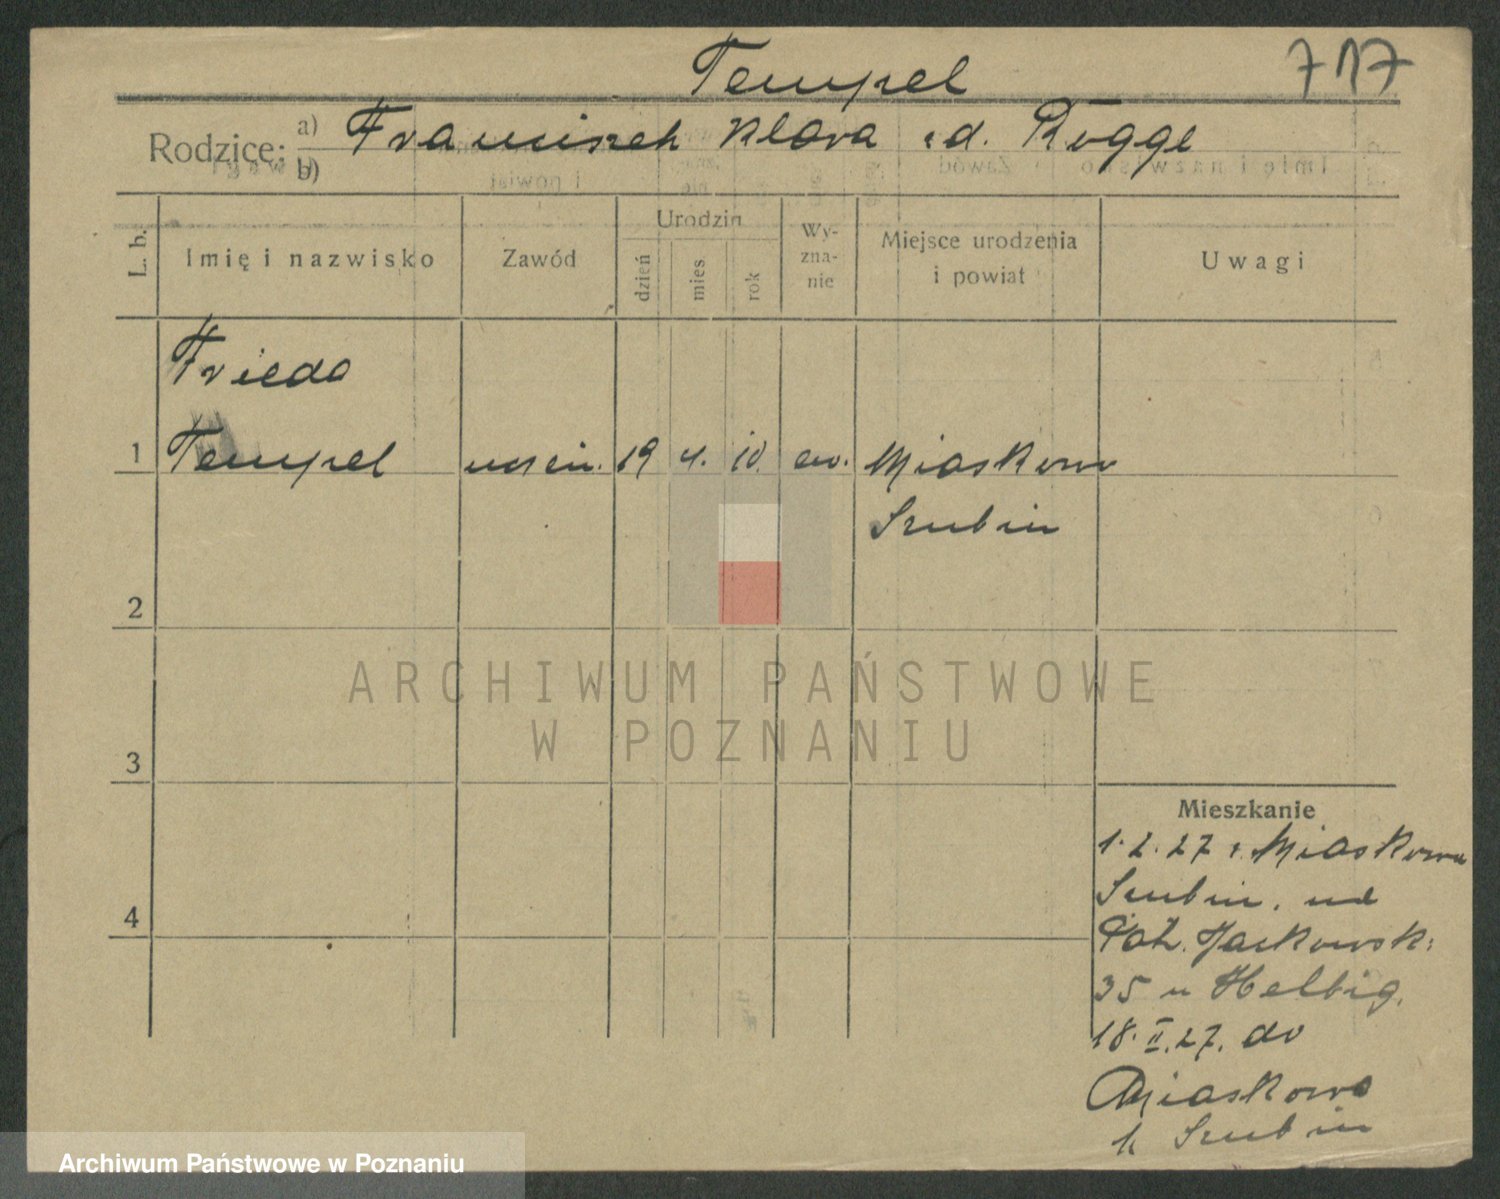 Tempel
717
Rodzice: a) Franciszek Klara z d. Rogge
b)
L. b.
Imię i nazwisko
Zawód
Urodzin
dzień
mies
rok
Wy-
zna-
nie
Miejsce urodzenia
i powiat
Uwagi
Frieda
1 Tempel uczen. 19 4. 10. ew. Miaskowo
Szubin
2
ARCHIWUM PAŃSTWOWE
W POZNANIU
3
Mieszkanie
1.2.27 z Miaskowa
Szubin. ul
Jackowsk.
4
35 u Helbig.
18.II.27. do
Miaskowo
Szubin
Archiwum Państwowe w Poznaniu